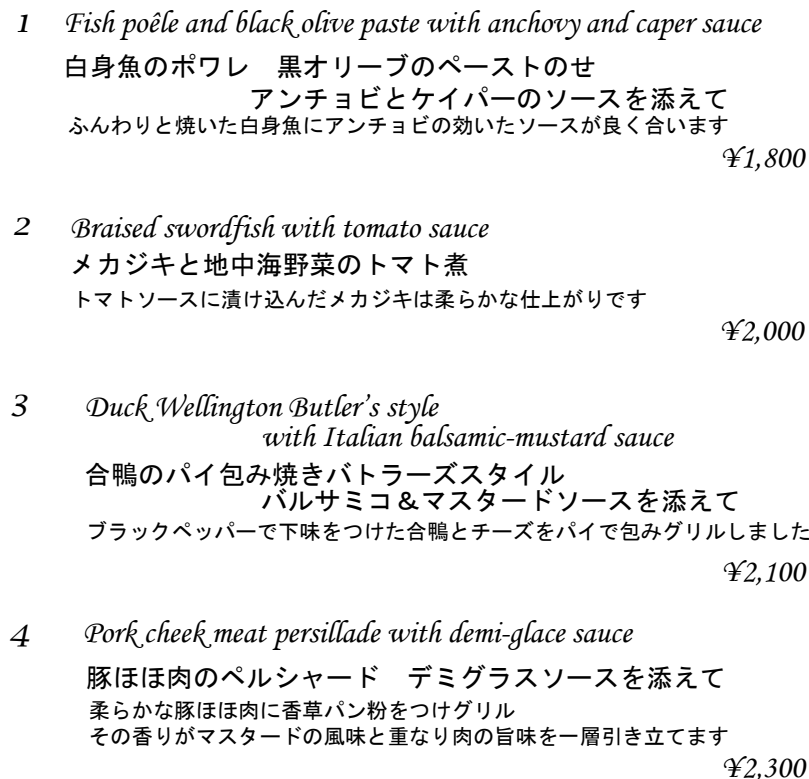 1 Fish poêle and black olive paste with anchovy and caper sauce
白身魚のポワレ　黒オリーブのペーストのせ
アンチョビとケイパーのソースを添えて
ふんわりと焼いた白身魚にアンチョビの効いたソースが良く合います
¥1,800
2 Braised swordfish with tomato sauce
メカジキと地中海野菜のトマト煮
トマトソースに漬け込んだメカジキは柔らかな仕上がりです
¥2,000
3 Duck Wellington Butler's style
with Italian balsamic-mustard sauce
合鴨のパイ包み焼きバトラーズスタイル
バルサミコ＆マスタードソースを添えて
ブラックペッパーで下味をつけた合鴨とチーズをパイで包みグリルしました
¥2,100
4 Pork cheek meat persillade with demi-glace sauce
豚ほほ肉のペルシャード　デミグラスソースを添えて
柔らかな豚ほほ肉に香草パン粉をつけグリル
その香りがマスタードの風味と重なり肉の旨味を一層引き立てます
¥2,300